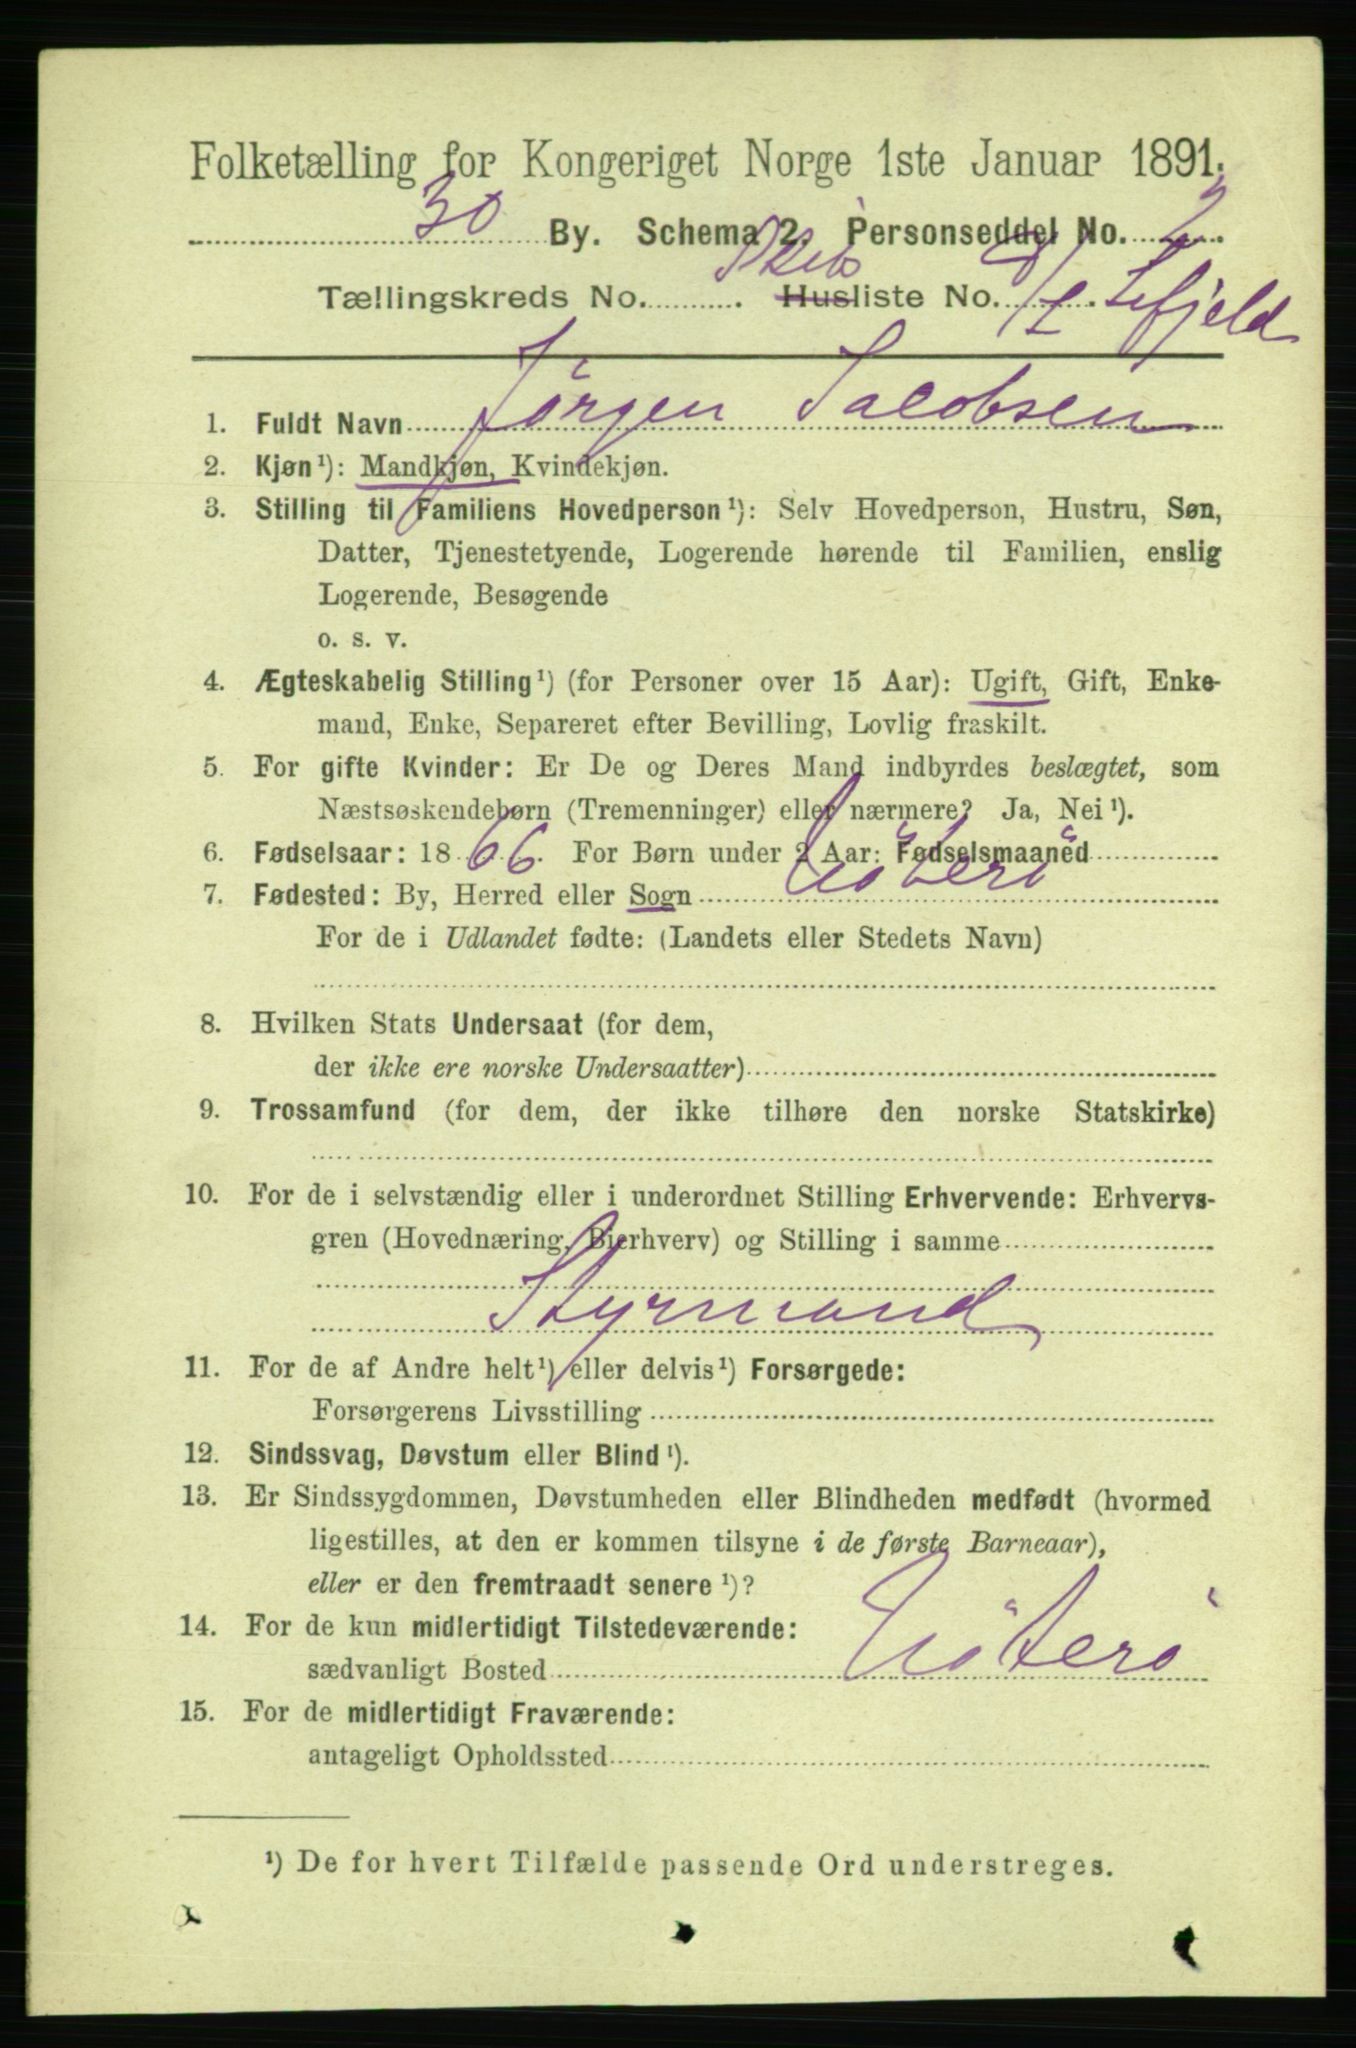 Folketælling for Kongeriget Norge 1ste Januar 1891.
30 By. Schema 2. Personseddel No. 2
Tællingskreds No. Skibs Husliste No. Lifjeld
1. Fuldt Navn Jörgen Jacobsen
2. Kjøn ¹): Mandkjøn, Kvindekjøn.
3. Stilling til Familiens Hovedperson ¹): Selv Hovedperson, Hustru, Søn,
Datter, Tjenestetyende, Logerende hørende til Familien, enslig
Logerende, Besøgende
o. s. v.
4. Ægteskabelig Stilling ¹) (for Personer over 15 Aar): Ugift, Gift, Enke-
mand, Enke, Separeret efter Bevilling, Lovlig fraskilt.
5. For gifte Kvinder: Er De og Deres Mand indbyrdes beslægtet, som
Næstsøskendebørn (Tremenninger) eller nærmere? Ja, Nei ¹).
6. Fødselsaar: 1866. For Børn under 2 Aar: Fødselsmaaned
7. Fødested: By, Herred eller Sogn Nöterö
For de i Udlandet fødte: (Landets eller Stedets Navn)
8. Hvilken Stats Undersaat (for dem,
der ikke ere norske Undersaatter)
9. Trossamfund (for dem, der ikke tilhøre den norske Statskirke)
10. For de i selvstændig eller i underordnet Stilling Erhvervende: Erhvervs-
gren (Hovednæring, Bierhverv) og Stilling i samme
Styrmand
11. For de af Andre helt ¹) eller delvis ¹) Forsørgede:
Forsørgerens Livsstilling
12. Sindssvag, Døvstum eller Blind ¹).
13. Er Sindssygdommen, Døvstumheden eller Blindheden medfødt (hvormed
ligestilles, at den er kommen tilsyne i de første Barneaar),
eller er den fremtraadt senere ¹)?
14. For de kun midlertidigt Tilstedeværende:
sædvanligt Bosted Nöterö
15. For de midlertidigt Fraværende:
antageligt Opholdssted
¹) De for hvert Tilfælde passende Ord understreges.